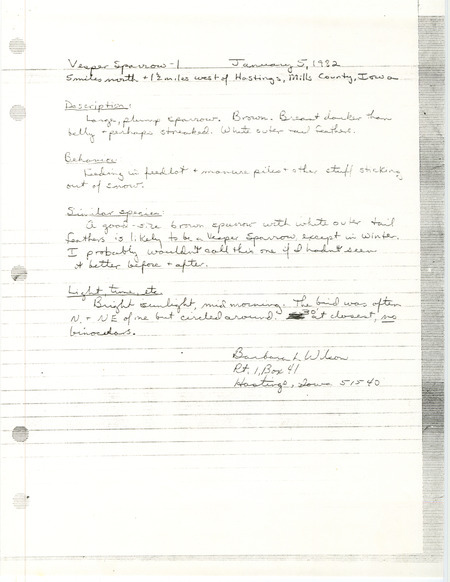 Vesper Sparrow-1 January 5, 1982
5 miles north + 1½ miles west of Hastings, Mills County, Iowa
Description:
Large, plump sparrow. Brown. Breast darker than
belly + perhaps streaked. White outer tail feathers.
Behavior
Feeding in feedlot + manure piles + other stuff sticking
out of snow.
Similar species:
A good-size brown sparrow with white outer tail
feathers is likely to be a Vesper Sparrow, except in winter.
I probably wouldn't call this one if I hadn't seen
it better before + after.
Light, time, etc.
Bright sunlight, mid morning. The bird was often
N. + NE of me but circled around. 30' at closest, no
binoculars.
Barbara L. Wilson
Rt. 1, Box 41
Hastings, Iowa 51540